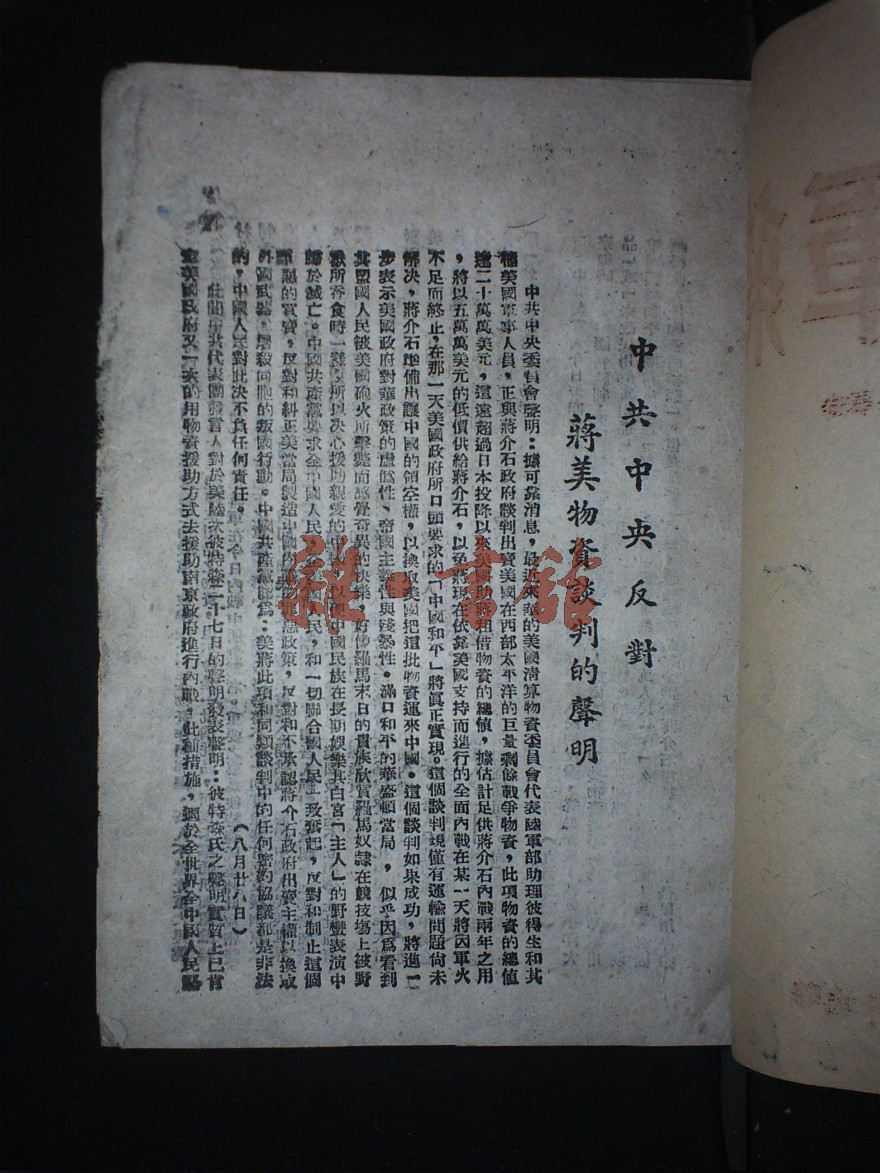 中共中央反對
蔣美物資談判的聲明
中共中央委員會聲明：據可靠消息，最近來華的美國淸算物資委員會代表陸軍部助理彼得生和其
他美國軍事人員，正與蔣介石政府談判出賣美國在西部太平洋的巨量剩餘戰爭物資，此項物資的總値
達二十萬萬美元，這遠超過日本投降以來美國助蔣租借物資的總値，據估計足供蔣介石內戰兩年之用
，將以五萬萬美元的低價供給蔣介石，以免蔣現在依靠美國支持而進行的全面內戰在某一天將因軍火
不足而終止，在那一天美國政府所口頭要求的「中國和平」將眞正實現。這個談判現僅有運輸問題尙未
解決，蔣介石準備出讓中國的領空權，以換取美國把這批物資運來中國。這個談判如果成功，將進一
步表示美國政府對華政策的虛僞性、帝國主義性與殘酷性。滿口和平的華盛頓當局，似乎因爲看到
其盟國人民被美國砲火所擊斃而感覺奇異的快樂，好像羅馬末日的貴族欣賞羅馬奴隸在競技塲上被野
獸所吞食時一樣，所以决心援助親愛的 中國民族在長期娛樂其白宮「主人」的野蠻表演中
歸於滅亡。中國共產黨要求全中國人民， 國人民，和一切聯合國人民一致奮起，反對和制止這個
罪惡的買賣，反對和糾正美當局製造中國內 政策，反對和不承認蔣介石政府出賣主權以換取
外國武器，屠殺同胞的叛國行動。中國共產黨 爲：美蔣此項和同類談判中的任何密約協議都是非法
的，中國人民對此決不負任何責任。
（八月廿八日）
此間中共代表團發言人對於美陸次彼特 廿七日的聲明發表聲明：彼特 氏之聲明實質上已肯
定美國政府又一次的用物資援助方式去援助南京政府進行內戰，此種措施， 於全世界全中國人民